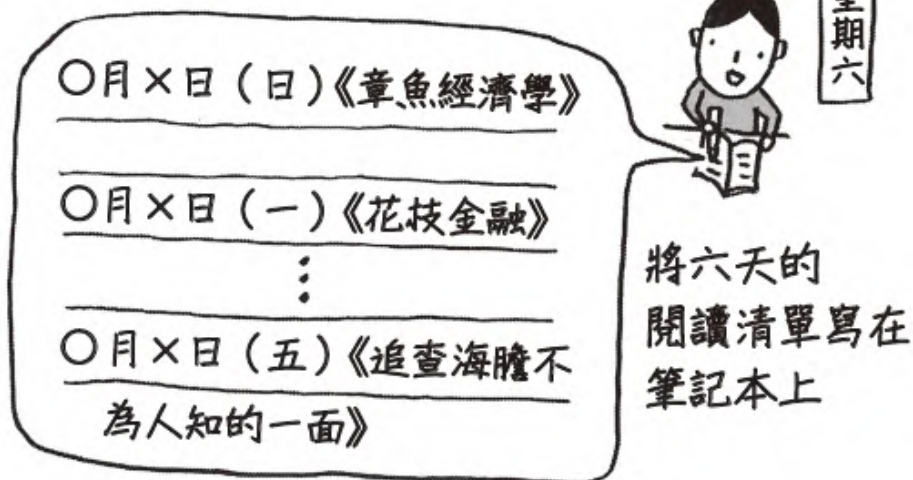 星期六
○月×日（日）《章魚經濟學》
○月×日（一）《花枝金融》
⋮
○月×日（五）《追查海膽不
為人知的一面》
將六天的
閱讀清單寫在
筆記本上